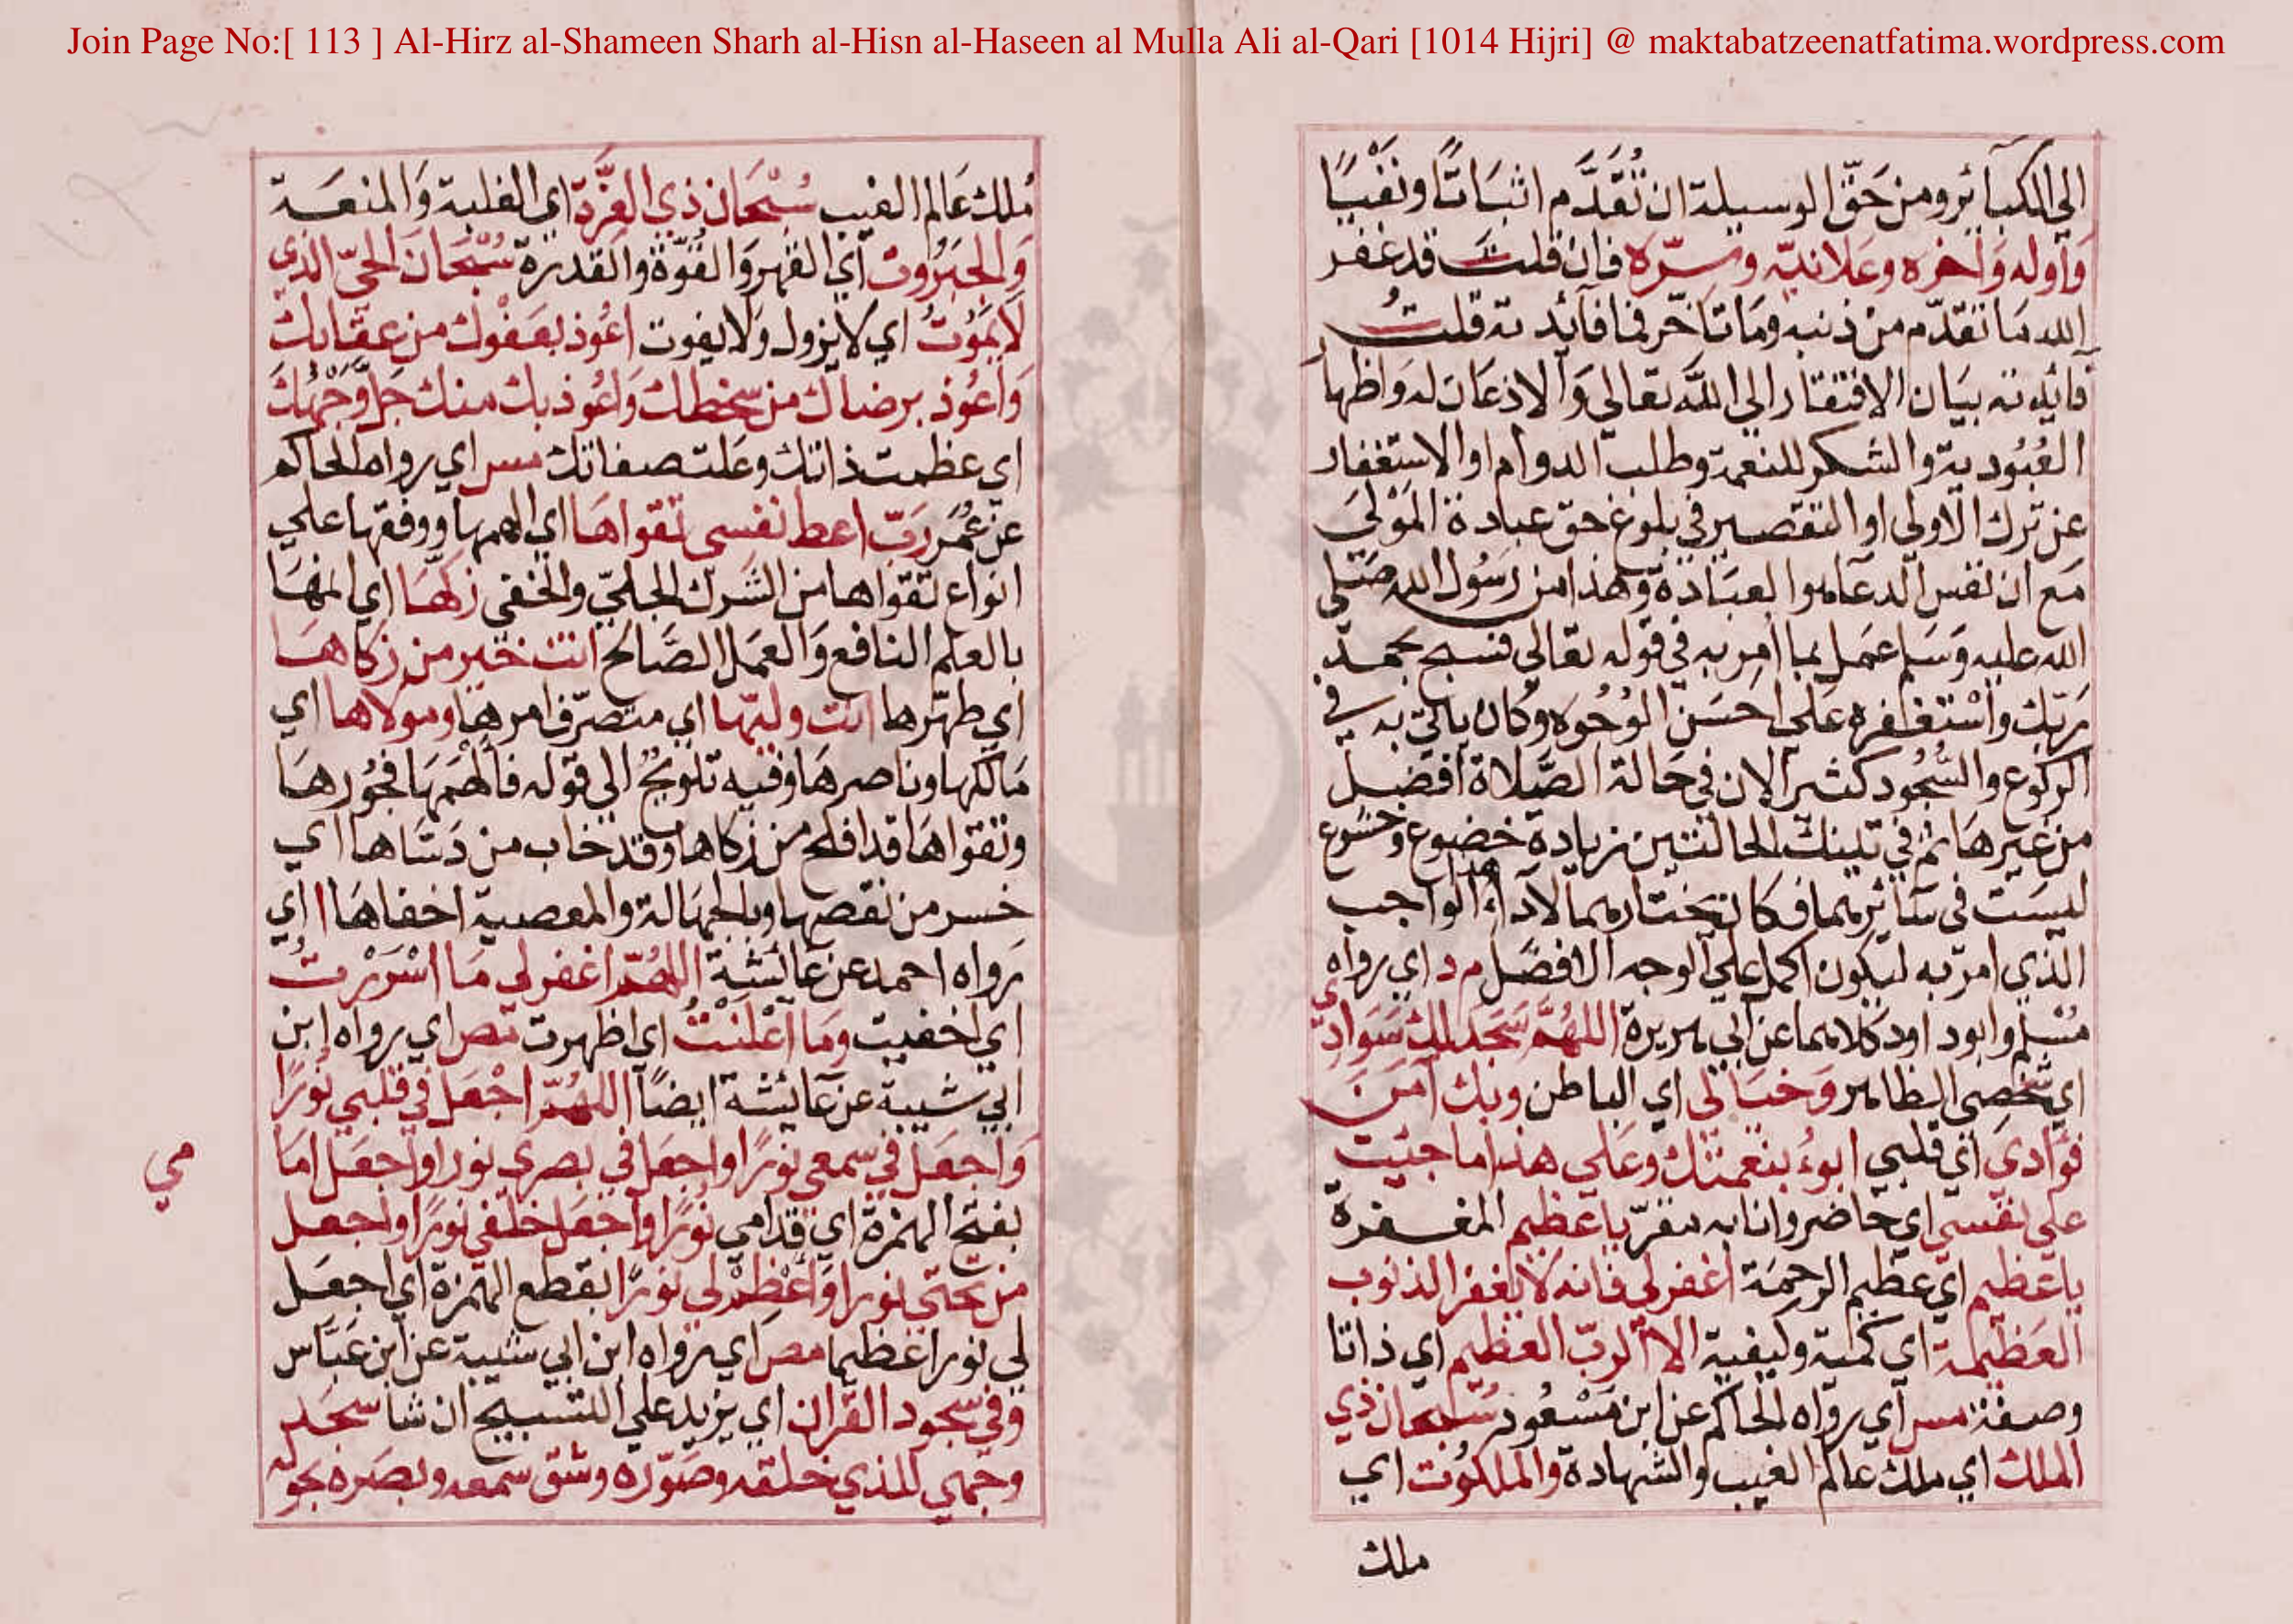 Join Page No:[ 113 ] Al-Hirz al-Shameen Sharh al-Hisn al-Haseen al Mulla Ali al-Qari [1014 Hijri] @ maktabatzeenatfatima.wordpress.com
الى الكبائر ومن حَقّ الوسيلة ان تُقَدَّم اثباتًا ونفيًا
وَاوله وَاخره وعَلانيّه وسِرّه فان قلتَ قد غفر
الله مَا تقدّم من ذنبه ومَا تأخّر فما فائدته قلتُ
فائدته بيَان الافتقار الى اللّه تعالي وَالاذعان له وَاظهار
العُبُودية والشكر للنعمة وطلب الدوام او الاستغفار
عن ترك الاولي او التقصير في بلوغ حق عبادة المَوْليَ
مَع ان نفس الدعاء هو العبَادة وهذا من رَسُول الله صَلى
الله عليه وَسَلم عمَل بما امِر به في قوله تعالي فسبح بحمد
ربّك واسْتغفره عَلى احسَن الوُجُوه وكان ياتي به في
الركوع والسُّجُود كثيرا لان في حَالة الصَّلاة افضل
من غيرهَا ثم في تينك الحالتين زيادة خضوع وخشوع
ليسَت في سَائرهما فكان يختارهما لاداء هذا الواجب
الذي امر به ليكون اكمل على الوجه الافضل م د اي رواه
مُسْلم وابو داود كلاهما عن ابي هريرة اللهُمَّ سَجَد لك سَوَادي
اي شخصي الظاهر وَخيَالي اي الباطن وبك آمَن
فؤادي اي قلبي ابوءُ بنعمتك وعَلي هذا ما جنيت
علي نفسي اي حَاضر وانا به مقرّ يا عظيم المغفرة
يا عَظيم اي عظيم الرحمَة اغفر لي فانه لا يغفر الذنوب
العَظيمة اي كمية وكيفية الا الرب العظيم اي ذاتا
وصفة مس اي رواه الحاكم عن ابن مَسْعُود سُبحان ذي
الملك اي ملك عالم الغيب والشهادة والملكوُت اي
ملك
مُلك عَالم الغيب سُبْحَان ذي العِزَّة اي الغلبة وَالمنعَة
وَالجَبَرُوت اي القهر وَالقُوّة والقدرة سُبْحَان الحيّ الذي
لَا يَمُوتُ اي لا يزول وَلا يفوت اعُوذ بعَفْوك من عقابك
وَاعُوذ برضاك من سخطك وَاعُوذ بك منك جَلَّ وَجْهُك
اي عظمت ذاتك وعَلت صفاتك مس اي رواه الحاكم
عن عُمَر رَبّ اعط نفسي تقواهَا اي الهمها ووفقها علي
انواع تقواها من الشرك الجليّ والخفي زكّهَا اي انمها
بالعلم النافع وَالعمَل الصَّالح انت خير من زكاهَا
اي طهّرها انت وليّها اي متصرّف امرها ومولاها اي
مَالكها وناصرهَا وفيه تلويحٌ الي قوله فَألْهَمَهَا فجُورهَا
وتقواهَا قد افلح من زكاها وقد خاب من دَسَّاها اي
خسر من نقصها وبالجهَالة والمعصية اخفاهَا ا اي
رواه احمد عن عَائشة اللهُمّ اغفر لي مَا اسْرَرْتُ
اي اخفيت ومَا اعْلَنْتُ اي اظهرت مص اي رواه ابن
ابي شيبة عن عَائشة ايضًا اللهُمّ اجْعَل في قلبي نُورًا
وَاجعَل في سمعي نورًا واجعَل في بصري نورا واجعَل اما
مي
بفتح الهمزة اي قدامي نُورًا وَاجعَل خلفي نورًا واجعل
من تحتي نورا وَأعْظِمْ لي نورًا بقطع الهمزة اي اجعَل
لي نورا عظيما مص اي رواه ابن ابي شيبة عن ابن عَبَّاس
وَفي سجود القران اي يزيد علي التسبيح ان شا سجَد
وجهي للذي خلقه وصَوّره وشق سمعه وبصَره بحو